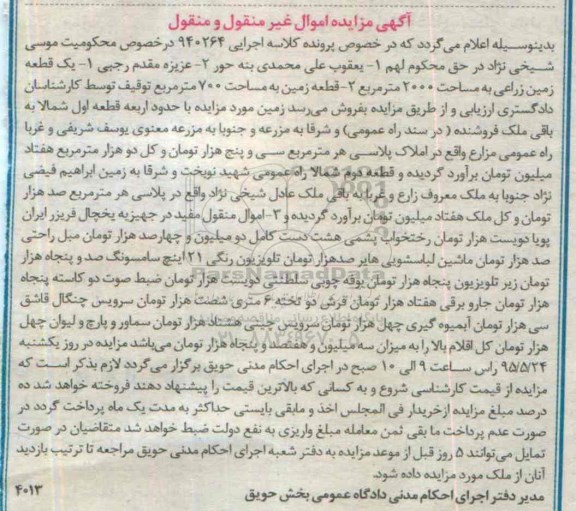 آگهی مزایده اموال غیر منقول و منقول
بدینوسیله اعلام می گردد که در خصوص پرونده کلاسه اجرایی ۹۴۰۲۶۴ درخصوص محکومیت موسی
شیخی نژاد در حق محکوم لهم ۱- یعقوب علی محمدی بنه حور ۲- عزیزه مقدم رجبی ۱- یک قطعه
زمین زراعی به مساحت ۲۰۰۰ مترمربع ۲-قطعه زمین به مساحت ۷۰۰ مترمربع توقیف توسط کارشناسان
دادگستری ارزیابی و از طریق مزایده بفروش می رسد زمین مورد مزایده با حدود اربعه قطعه اول شمالا به
باقی ملک فروشنده ( در سند راه عمومی) و شرقا به مزرعه و جنوبا به مزرعه معنوی یوسف شریفی و غربا
راه عمومی مزارع واقع در املاک پلاسی هر مترمربع سی و پنج هزار تومان و کل دو هزار مترمربع هفتاد
میلیون تومان برآورد گردیده و قطعه دوم شمالا راه عمومی شهید نوبخت و شرقا به زمین ابراهیم فیضی
نژاد جنوبا به ملک معروف زارع و غربا به باقی ملک عادل شیخی نژاد واقع در پلاسی هر مترمربع صد هزار
تومان و کل ملک هفتاد میلیون تومان برآورد گردیده و ۳- اموال منقول مفید در جهیزیه یخچال فریزر ایران
پویا دویست هزار تومان رختخواب پشمی هشت دست کامل دو میلیون و چهارصد هزار تومان مبل راحتی
صد هزار تومان ماشین لباسشویی هایر صدهزار تومان تلویزیون رنگی ۲۱ اینچ سامسونگ صد و پنجاه هزار
تومان زیر تلویزیون پنجاه هزار تومان بوفه چوبی سلطنتی دویست هزار تومان ضبط صوت دو کاسته پنجاه
هزار تومان جارو برقی هفتاد هزار تومان فرش دو تخته ۶ متری شصت هزار تومان سرویس چنگال قاشق
سی هزار تومان آبمیوه گیری چهل هزار تومان سرویس چینی هشتاد هزار تومان سماور و پارچ و لیوان چهل
هزار تومان کل اقلام بالا را به میزان سه میلیون و هفتصد و پنجاه هزار تومان می باشد مزایده در روز یکشنبه
۹۵/۵/۲۴ راس ساعت ۹ الی ۱۰ صبح در اجرای احکام مدنی حویق برگزار می گردد لازم بذکر است که
مزایده از قیمت کارشناسی شروع و به کسانی که بالاترین قیمت را پیشنهاد دهند فروخته خواهد شد ده
درصد مبلغ مزایده ازخریدار فی المجلس اخذ و مابقی بایستی حداکثر به مدت یک ماه پرداخت گردد در
صورت عدم پرداخت ما بقی ثمن معامله مبلغ واریزی به نفع دولت ضبط خواهد شد متقاضیان در صورت
تمایل می توانند ۵ روز قبل از موعد مزایده به دفتر شعبه اجرای احکام مدنی حویق مراجعه تا ترتیب بازدید
آنان از ملک مورد مزایده داده شود.
مدیر دفتر اجرای احکام مدنی دادگاه عمومی بخش حویق
۴۰۱۳
ParsNamadData